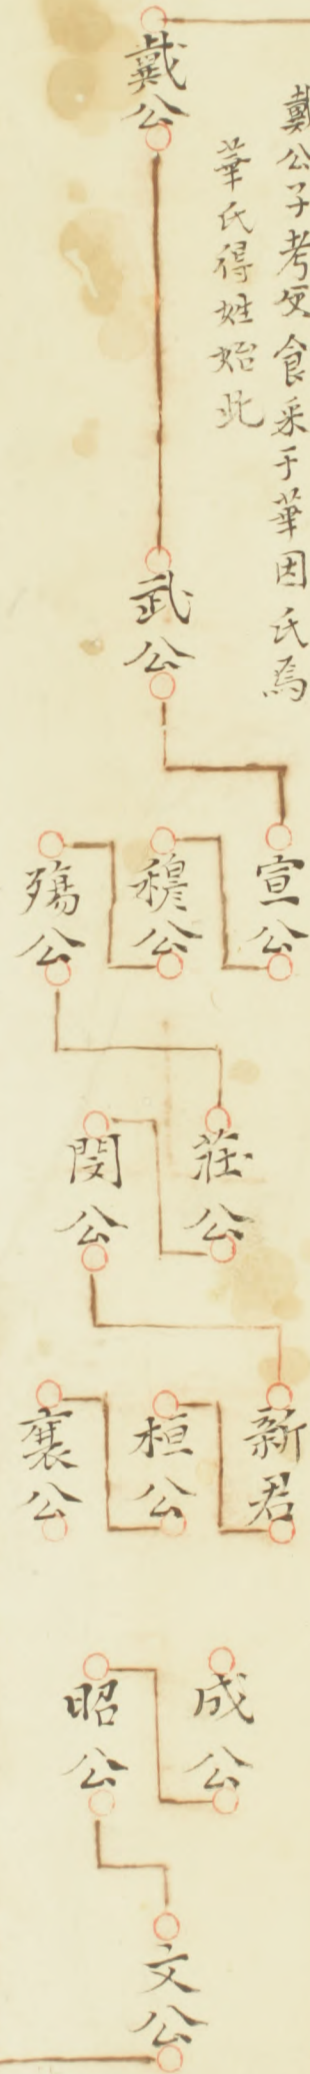 戴公子考父食采于華因氏焉
華氏得姓始此
戴公
武公
宣公
穆公
殤公
莊公
閔公
新君
桓公
襄公
成公
昭公
文公